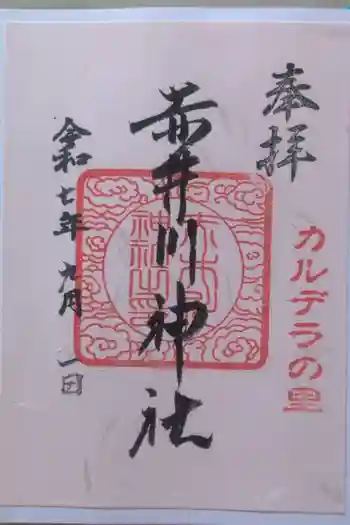 奉拝
カルデラの里
赤井川神社
令和七年 九月 一日